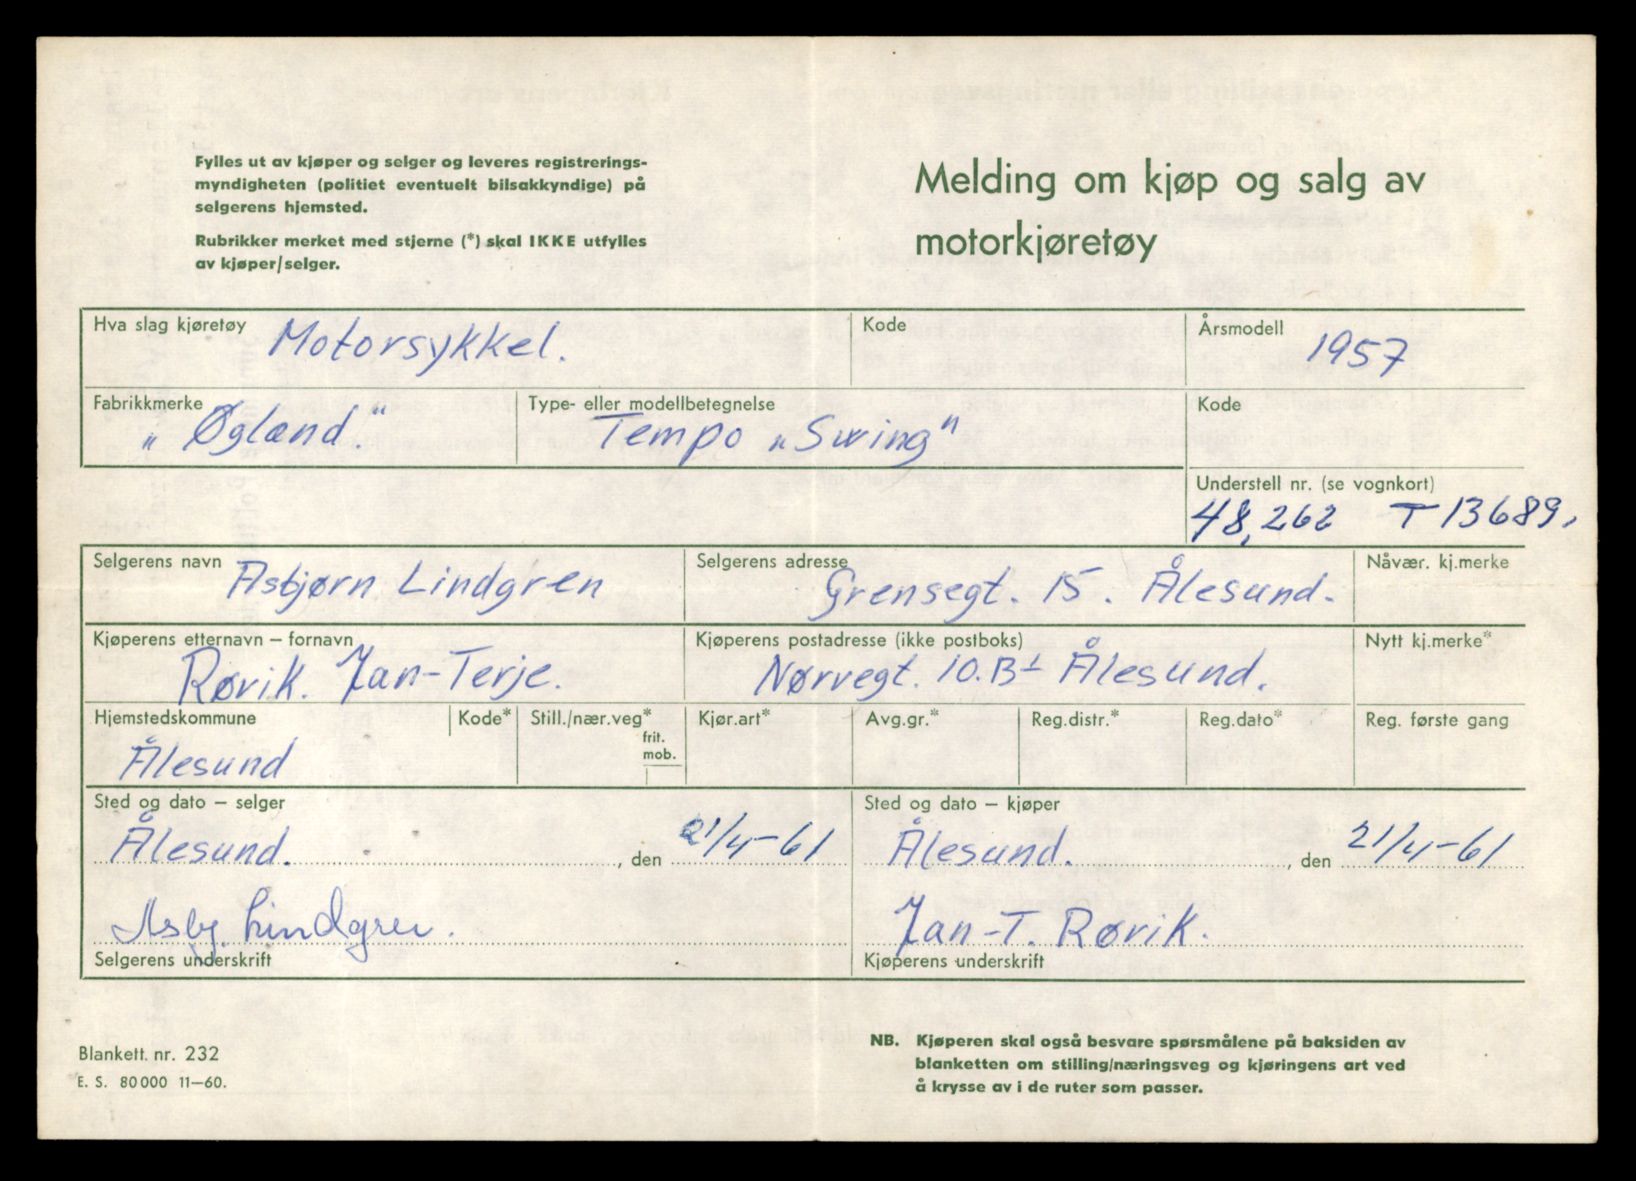 Fylles ut av kjøper og selger og leveres registrerings-
myndigheten (politiet eventuelt bilsakkyndige) på
selgerens hjemsted.
Rubrikker merket med stjerne (*) skal IKKE utfylles
av kjøper/selger.
Melding om kjøp og salg av
motorkjøretøy
Hva slag kjøretøy Motorsykkel.
Kode
Årsmodell 1957
Fabrikkmerke „Øgland."
Type- eller modellbetegnelse Tempo „Swing"
Kode
Understell nr. (se vognkort)
48,262 T 13689,
Selgerens navn Asbjørn Lindgren
Selgerens adresse Grensegt. 15. Ålesund.
Nåvær. kj.merke
Kjøperens etternavn – fornavn Rørvik. Jan-Terje.
Kjøperens postadresse (ikke postboks) Nørvegt. 10.B⊥ Ålesund.
Nytt kj.merke*
Hjemstedskommune Ålesund
Kode*
Still./nær.veg*
frit.
mob.
Kjør.art*
Avg.gr.*
Reg.distr.*
Reg.dato*
Reg. første gang
Sted og dato – selger
Ålesund. , den 21/4-61
Asbj. Lindgren.
Selgerens underskrift
Sted og dato – kjøper
Ålesund. , den 21/4-61
Jan-T. Rørvik.
Kjøperens underskrift
Blankett. nr. 232
E. S. 80000 11–60.
NB. Kjøperen skal også besvare spørsmålene på baksiden av
blanketten om stilling/næringsveg og kjøringens art ved
å krysse av i de ruter som passer.